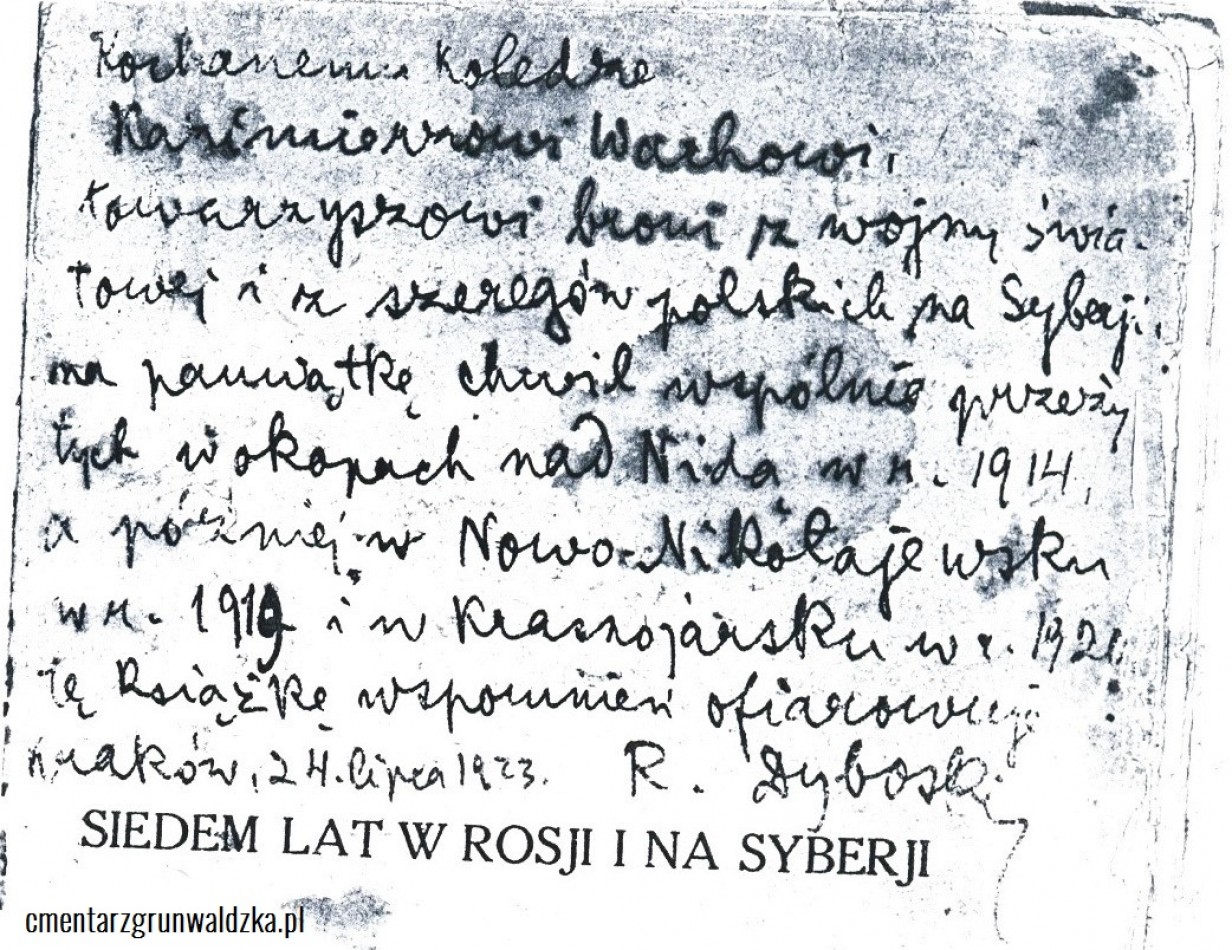 Kochanemu Koledze
Kazimierzowi Wachowi,
towarzyszowi broni z wojny świa-
towej i z szeregów polskich na Syberji,
na pamiątkę chwil wspólnie przeży
tych w okopach nad Nidą w r. 1914,
a później w Nowo-Nikołajewsku
w r. 1919 i w Krasnojarsku w r. 1920,
tę książkę wspomnień ofiarowuję
Kraków, 24. lipca 1923. R. Dyboski
SIEDEM LAT W ROSJI I NA SYBERJI
cmentarzgrunwaldzka.pl